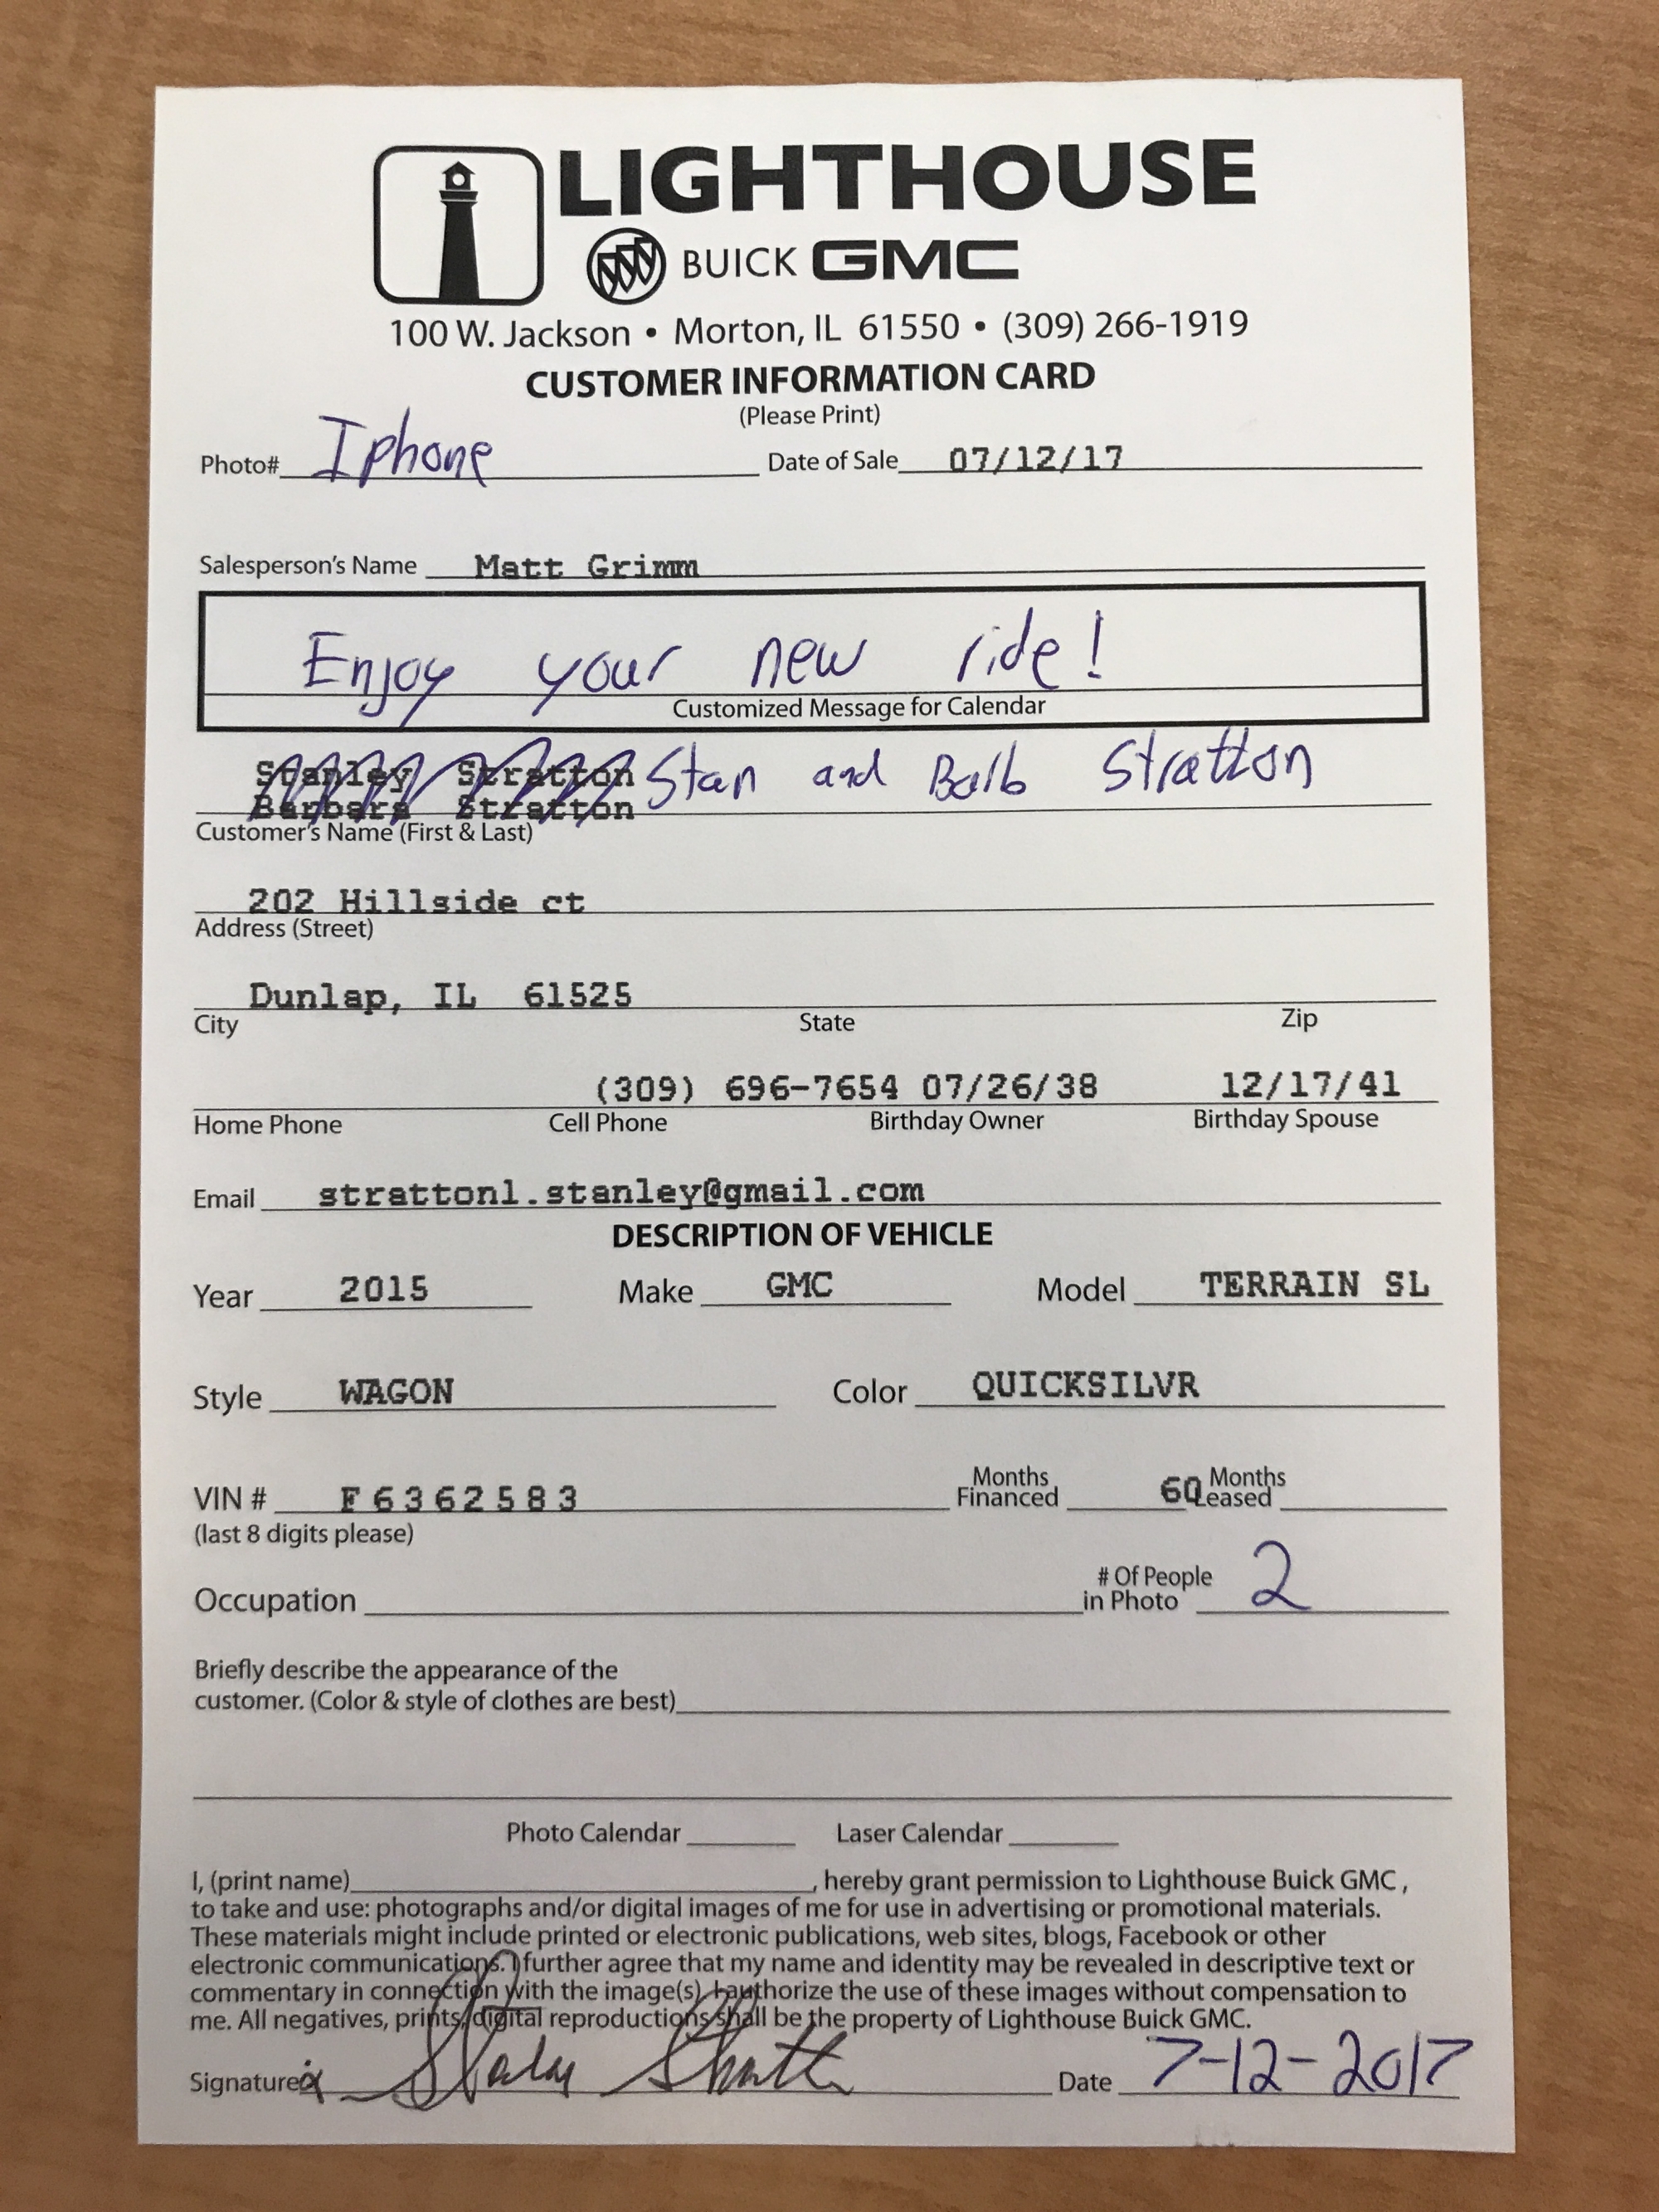 LIGHTHOUSE
BUICK GMC
100 W. Jackson • Morton, IL 61550 • (309) 266-1919
CUSTOMER INFORMATION CARD
(Please Print)
Photo# Iphone Date of Sale 07/12/17
Salesperson's Name Matt Grimm
Enjoy your new ride!
Customized Message for Calendar
Stanley Stratton Stan and Barb Stratton
Barbara Stratton
Customer's Name (First & Last)
202 Hillside ct
Address (Street)
Dunlap, IL 61525
City State Zip
(309) 696-7654 07/26/38 12/17/41
Home Phone Cell Phone Birthday Owner Birthday Spouse
Email stratton1.stanley@gmail.com
DESCRIPTION OF VEHICLE
Year 2015 Make GMC Model TERRAIN SL
Style WAGON Color QUICKSILVR
VIN # F6362583 Months Financed 60 Months Leased
(last 8 digits please)
Occupation # Of People in Photo 2
Briefly describe the appearance of the
customer. (Color & style of clothes are best)
Photo Calendar Laser Calendar
I, (print name) , hereby grant permission to Lighthouse Buick GMC ,
to take and use: photographs and/or digital images of me for use in advertising or promotional materials.
These materials might include printed or electronic publications, web sites, blogs, Facebook or other
electronic communications. I further agree that my name and identity may be revealed in descriptive text or
commentary in connection with the image(s). I authorize the use of these images without compensation to
me. All negatives, prints, digital reproductions shall be the property of Lighthouse Buick GMC.
Signature x Stanley Stratton Date 7-12-2017